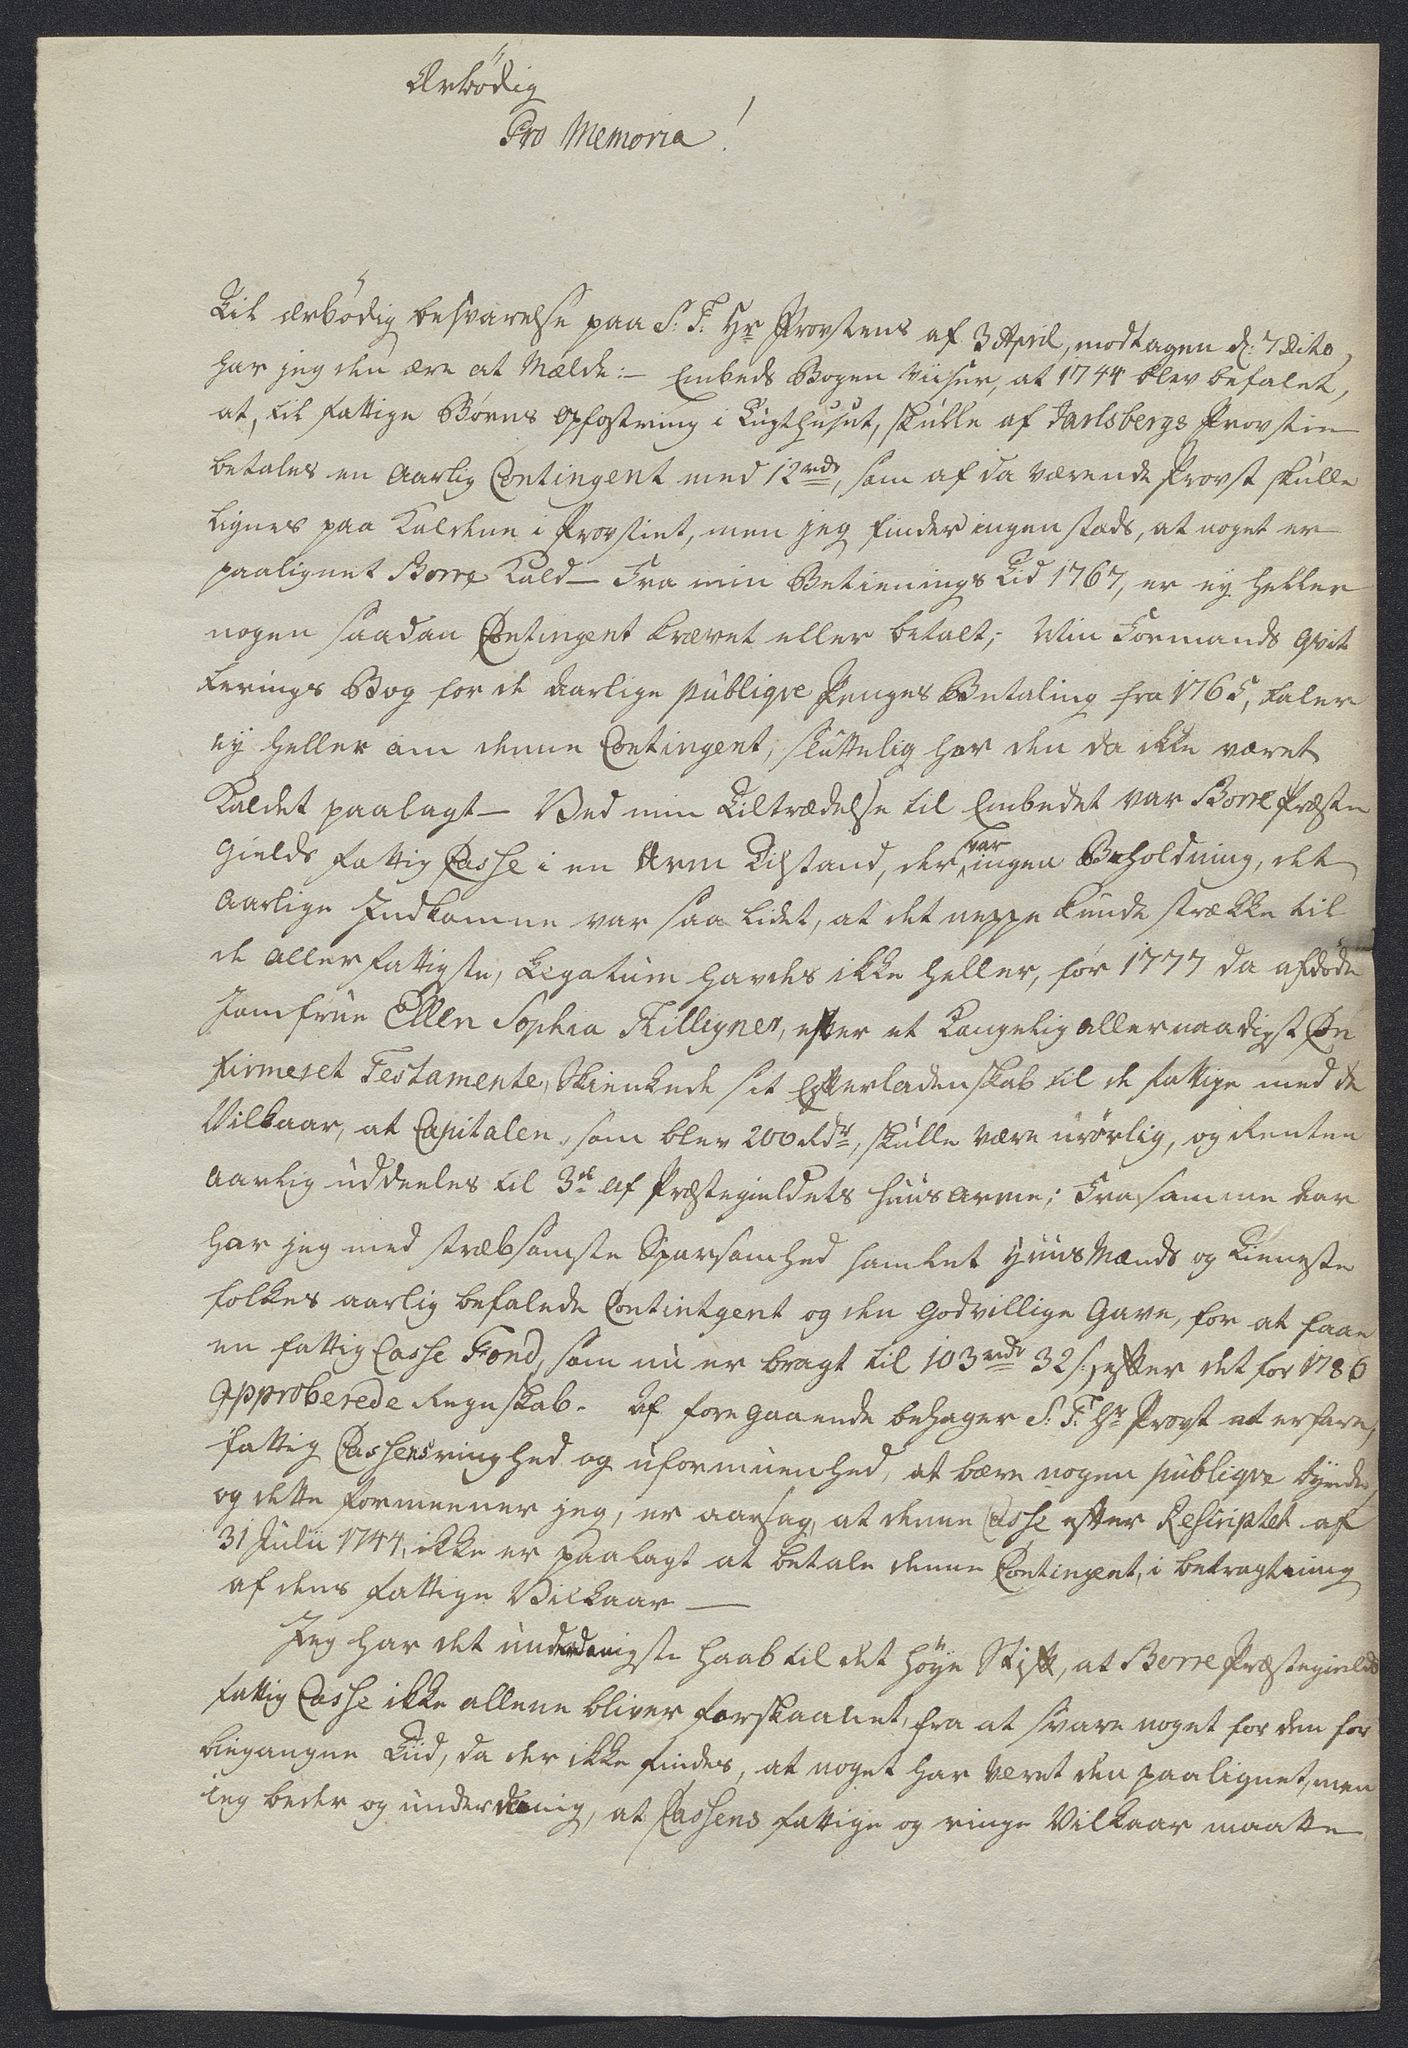 Ærbödig
Pro Memoria!
Til Ærbödig besvarelse paa S: T: Hr Provstens af 3 April, modtagen d: 7 Dito,
har jeg den ære at Mælde:- Embeds Bogen viiser, at 1744 blev befalet,
at, til fattige Børns Opfostring i Tugthuset, skulle af Jarlsbergs Provstie
betales en Aarlig Contingent med 12 rdr, som af da værende Provst skulle
lignes paa Kaldene i Provstiet, men jeg finder ingen stads, at noget er
paalignet Borre Kald- Fra min Betienings Tid 1767, er ey heller
nogen saadan Contingent krævet eller betalt; Min Formands Qvit
terings Bog for de Aarlige publiqve Penges Betaling fra 1765, taler
ey heller om denne Contingent, sluttelig har den da ikke været
Kaldet paalagt- Ved min Tiltrædelse til Embedet var Borre Præste
Gields fattig Casse i en Arm Tilstand, der var ingen Beholdning, det
aarlige Indkomne var saa lidet, at det neppe kunde strække til
de allerfattigste, Legatum havdes ikke heller, før 1777 da afdöde
Jomfrue Ellen Sophia Tilligner, efter et Kongelig allernaadigst Con
firmeret Testamente, Skienkede sit Efterladenskab til de fattige med de
Vilkaar, at Capitalen, som blev 200 Rdr, skulle være urörlig, og Renten
aarlig uddeeles til 3de af Præstegieldets huusarme; Fra samme Aar
har jeg med stræbsomste Sparsomhed samlet Huus Mænds og Tieneste
folkes aarlig befalede Contintgent og den Godvillige Gave, for at faae
en fattig Casse Fond, som nu er bragt til 103 rdr 32 s:, efter det for 1786
Approberede Regnskab. Af foregaaende behager S: T: Hr Provst at erfare,
fattig Cassens ringhed og uformuenhed, at bære nogen publiqve byrde,
og dette formeener jeg, er aarsag, at denne Casse efter Rescriptet af
31 Julii 1744, ikke er paalagt at betale denne Contingent, i betragtning
af dens fattige Vilkaar —
Jeg har det underdanigste haab til det höye Stift, at Borre Præstegields
fattig Casse ikke allene bliver forskaanet, fra at svare noget for den for
biegangne Tiid, da der ikke findes, at noget har været den paalignet, men
ieg beder og underdanig, at Cassens fattige og ringe Vilkaar maatte